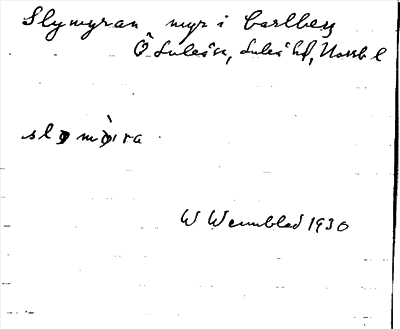 Slymyran myr i Carlberg
Ö Luleå sn, Luleå hd, Norrb l
W Wennbled 1930